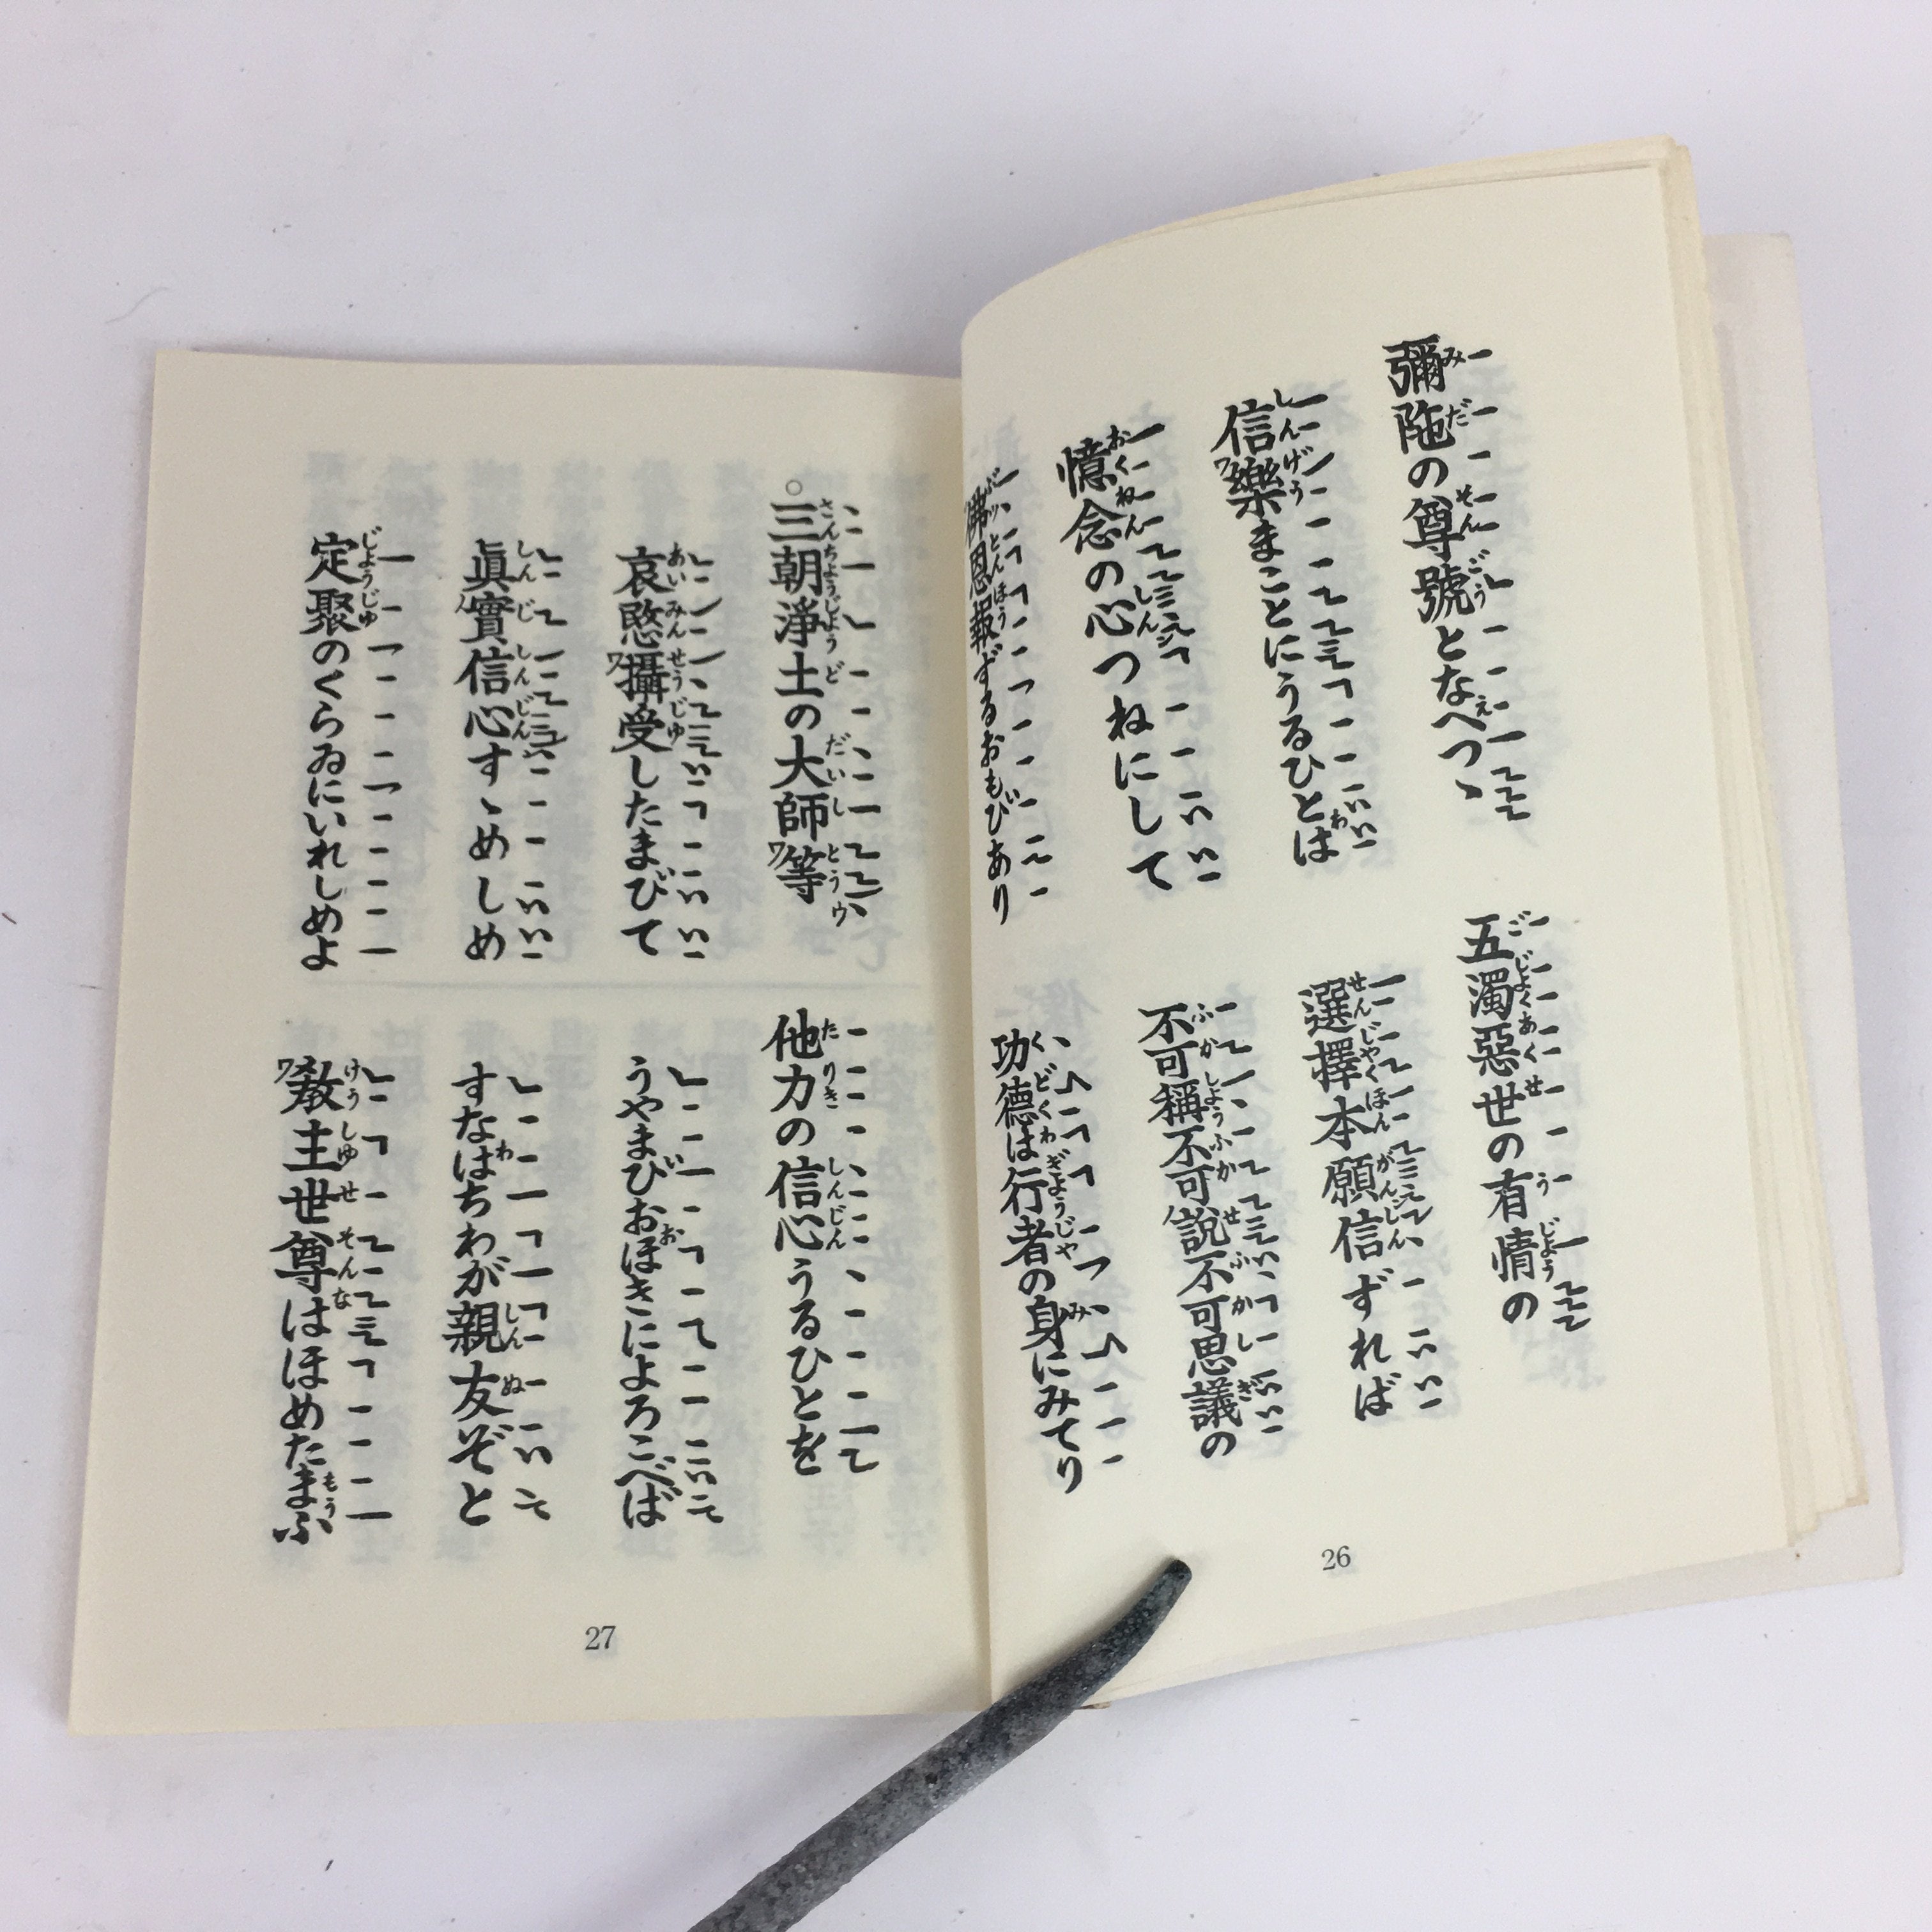 彌陁の尊號となへつゝ
信樂まことにうるひとは
憶念の心つねにして
佛恩報ずるおもひあり
五濁惡世の有情の
選擇本願信ずれば
不可稱不可說不可思議の
功德は行者の身にみてり
26
○三朝淨土の大師等
哀愍攝受したまひて
眞實信心すゝめしめ
定聚のくらゐにいれしめよ
他力の信心うるひとを
うやまひおほきによろこべば
すなはちわが親友ぞと
敎主世尊はほめたまふ
27